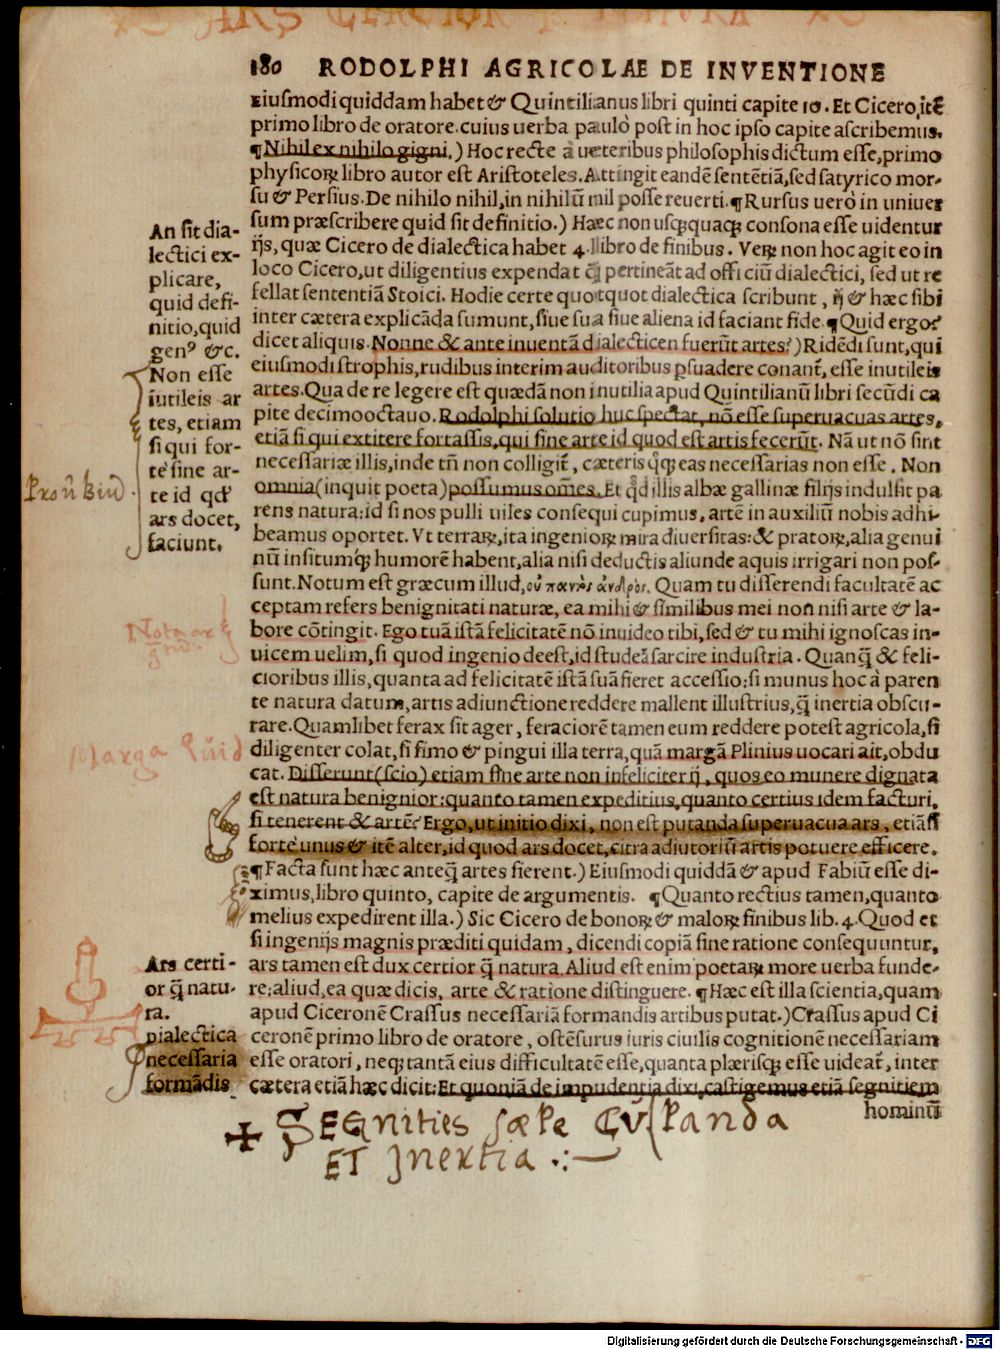 180 RODOLPHI AGRICOLAE DE INVENTIONE
eiusmodi quiddam habet & Quintilianus libri quinti capite 10. Et Cicero, itē
primo libro de oratore. cuius uerba paulò post in hoc ipso capite ascribemus.
¶Nihil ex nihilo gigni.) Hoc recte à ueteribus philosophis dictum esse, primo
physicoꝝ libro autor est Aristoteles. Attingit eandē sentētiā, sed satyrico mor-
su & Persius. De nihilo nihil, in nihilū nil posse reuerti. ¶Rursus uerò in uniuer
sum præscribere quid sit definitio.) Hæc non usꝗquaꝗ consona esse uidentur
ijs, quæ Cicero de dialectica habet 4. libro de finibus. Veꝝ non hoc agit eo in
loco Cicero, ut diligentius expendat q̄ pertineāt ad officiū dialectici, sed ut re
fellat sententiā Stoici. Hodie certe quotquot dialectica scribunt, ij & hæc sibi
inter cætera explicāda sumunt, siue sua siue aliena id faciant fide. ¶Quid ergo?
dicet aliquis. Nonne & ante inuentā dialecticen fuerūt artes?) Ridēdi sunt, qui
eiusmodi strophis, rudibus interim auditoribus ꝑsuadere conant̄, esse inutileis
artes. Qua de re legere est quædā non inutilia apud Quintilianū libri secūdi ca
pite decimooctauo. Rodolphi solutio huc spectat, nō esse superuacuas artes,
etiā si qui extitere fortassis, qui sine arte id quod est artis fecerūt. Nā ut nō sint
necessariæ illis, inde tn̄ non colligit̄, cæteris quoꝗ eas necessarias non esse. Non
omnia (inquit poeta) possumus om̄es. Et qd̄ illis albæ gallinæ filijs indulsit pa
rens natura: id si nos pulli uiles consequi cupimus, artē in auxiliū nobis adhi-
beamus oportet. Vt terraꝝ, ita ingenioꝝ mira diuersitas: & pratoꝝ, alia genui
nū insitumꝗ́ humorē habent, alia nisi deductis aliunde aquis irrigari non pos-
sunt. Notum est græcum illud, οὐ παντὸς ἀνδρὸς. Quam tu disserendi facultatē ac
ceptam refers benignitati naturæ, ea mihi & similibus mei non nisi arte & la-
bore cōtingit. Ego tuā istā felicitatē nō inuideo tibi, sed & tu mihi ignoscas in-
uicem uelim, si quod ingenio deest, id studeā sarcire industria. Quanꝗ̄ & feli-
cioribus illis, quanta ad felicitatē istā suā fieret accessio: si munus hoc à paren
te natura datum, artis adiunctione reddere mallent illustrius, q̄ inertia obscu-
rare. Quamlibet ferax sit ager, feraciorē tamen eum reddere potest agricola, si
diligenter colat, si fimo & pingui illa terra, quā margā Plinius uocari ait, obdu
cat. Disserunt (scio) etiam sine arte non infeliciter ij, quos eo munere dignata
est natura benignior: quanto tamen expeditius, quanto certius idem facturi,
si tenerent & artē? Ergo, ut initio dixi, non est putanda superuacua ars, etiāsi
forte unus & itē alter, id quod ars docet, citra adiutoriū artis potuere efficere.
¶Facta sunt hæc anteꝗ̄ artes fierent.) Eiusmodi quiddā & apud Fabiū esse di-
ximus, libro quinto, capite de argumentis. ¶Quanto rectius tamen, quanto
melius expedirent illa.) Sic Cicero de bonoꝝ & maloꝝ finibus lib. 4. Quod et
si ingenijs magnis præditi quidam, dicendi copiā sine ratione consequuntur,
ars tamen est dux certior q̄ natura. Aliud est enim poetaꝝ more uerba funde-
re: aliud, ea quæ dicis, arte & ratione distinguere. ¶Hæc est illa scientia, quam
apud Ciceronē Crassus necessariā formandis artibus putat.) Crassus apud Ci
ceronē primo libro de oratore, ostēsurus iuris ciuilis cognitionē necessariam
esse oratori, neqꝫ tantā eius difficultatē esse, quanta plærisꝗ esse uideat̄, inter
cætera etiā hæc dicit: Et quoniā de impudentia dixi, castigemus etiā segnitiem
hominū
An sit dia-
lectici ex-
plicare,
quid defi-
nitio, quid
genꝰ &c.
Non esse
iutileis ar
tes, etiam
si qui for-
te sine ar-
te id qd̓
ars docet,
faciunt.
Marga Quid
Ars certi-
or q̄ natu-
ra.
Dialectica
necessaria
formādis
SEGnities sæpe CUlpanda
ET Inertia
Digitalisierung gefördert durch die Deutsche Forschungsgemeinschaft - DFG